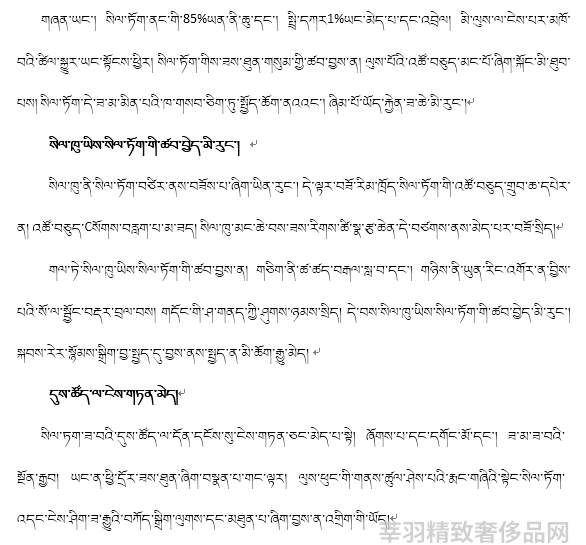 གཞན་ཡང་། སིལ་ཏོག་ནང་གི་85%ཡན་ནི་ཆུ་དང་། སྤྲི་དཀར1%ཡང་མེད་པ་དང་འབྲེལ། མི་ལུས་ལ་ངེས་པར་མཁོ་
བའི་ཚིལ་སྐྱུར་ཡང་སྟོངས་ཕྱིར། སིལ་ཏོག་གིས་ཟས་ཐུན་གསུམ་གྱི་ཚབ་བྱས་ན། ལུས་པོའི་འཚོ་བཅུད་མང་པོ་ཞིག་སྐོང་མི་ཐུབ་
པས། སིལ་ཏོག་དེ་ཟ་མ་མིན་པའི་ཁ་གསབ་ཅིག་ཏུ་སྤྱོད་ཆོག་ནའའང་། ཞིམ་པོ་ཡོད་རྐྱེན་ཟ་ཆེ་མི་རུང་།
སིལ་ཁུ་ཡིས་སིལ་ཏོག་གི་ཚབ་བྱེད་མི་རུང་།
སིལ་ཁུ་ནི་སིལ་ཏོག་བཙིར་ནས་བཟོས་པ་ཞིག་ཡིན་རུང་། དེ་ལྟར་བཟོ་རིམ་ཁྲོད་སིལ་ཏོག་གི་འཚོ་བཅུད་གྲུབ་ཆ་དཔེར་
ན། འཚོ་བཅུད་Cསོགས་བརླག་པ་མ་ཟད། སིལ་ཁུ་མང་ཆེ་བས་ཟས་རིགས་ཚི་སྣ་རྩ་ཆེན་དེ་བཙགས་ནས་མེད་པར་བཟོ་སྲིད།
གལ་ཏེ་སིལ་ཁུ་ཡིས་སིལ་ཏོག་གི་ཚབ་བྱས་ན། གཅིག་ནི་ཚ་ཚད་བརྒལ་སླ་བ་དང་། གཉིས་ནི་ཡུན་རིང་འགོར་ན་བྱིས་
པའི་སོ་ལ་སྦྱོང་བརྡར་བྲལ་བས། གདོང་གི་ཤ་གནད་ཀྱི་ཤུགས་ཉམས་སྲིད། དེ་བས་སིལ་ཁུ་ཡིས་སིལ་ཏོག་གི་ཚབ་བྱེད་མི་རུང་།
སྐབས་རེར་སྙོམས་སྒྲིག་བྱ་སྤྱད་དུ་བྱས་ནས་སྤྱད་ན་མི་ཆོག་རྒྱུ་མེད།
དུས་ཚོད་ལ་ངེས་གཏན་མེད།
སིལ་ཏག་ཟ་བའི་དུས་ཚོད་ལ་དོན་དངོས་སུ་ངེས་གཏན་ཅང་མེད་པ་སྟེ། ཞོགས་པ་དང་དགོང་མོ་དང་། ཟ་མ་ཟ་བའི་
སྔོན་རྒྱབ། ཡང་ན་ཕྱི་དྲོར་ཟས་ཐུན་ཞིག་བསྣན་པ་གང་ལྟར། ལུས་ཕུང་གི་གནས་ཚུལ་ཤེས་པའི་རྨང་གཞིའི་སྟེང་སིལ་ཏོག་
འདང་ངེས་ཤིག་ཟ་རྒྱུའི་བཀོད་སྒྲིག་ལུགས་དང་མཐུན་པ་ཞིག་བྱས་ན་འགྲིག་གི་ཡོད།
莘羽精致奢侈品网